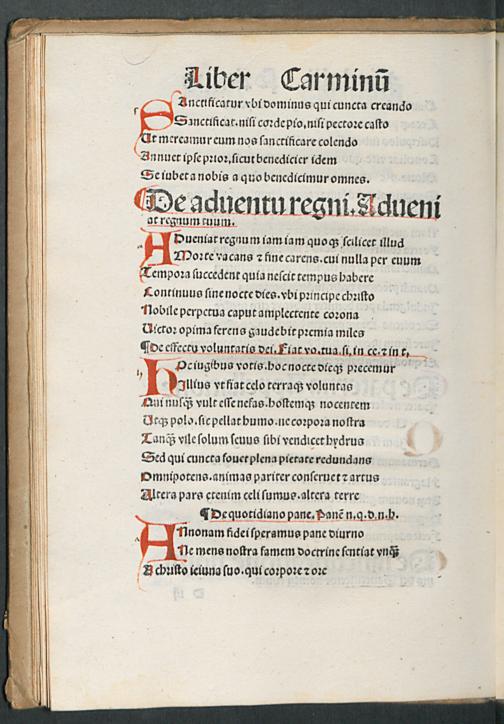 Liber Carminū
SAnctificatur vbi dominus qui cuncta creando
Sanctificat. nisi corde pio, nisi pectore casto
Ut mereamur eum nos sanctificare colendo
Annuet ipse prior, sicut benedicier idem
Se iubet a nobis a quo benedicimur omnes.
De aduentu regni. Adueni
at regnum tuum.
ADueniat regnum iam iam quoqȝ scilicet illud
Morte vacans ⁊ fine carens. cui nulla per euum
Tempora succedent quia nescit tempus habere
Continuus sine nocte dies. vbi principe christo
Nobile perpetua caput amplectente corona
Uictor opima ferens gaudebit premia miles
¶De effectu voluntatis dei. Fiat vo. tua. si, in ce. ⁊ in t,
Hec iugibus votis. hoc nocte dieqȝ precemur
Illius vt fiat celo terraqȝ voluntas
Qui nusqȝ vult esse nefas. hostemqȝ nocentem
Utqȝ polo. sic pellat humo. ne corpora nostra
Tanqȝ vile solum seuus sibi vendicet hydrus
Sed qui cuncta fouet plena pietate redundans
Omnipotens. animas pariter conseruet ⁊ artus
Altera pars etenim celi sumus. altera terre
¶De quotidiano pane. Panē n. q. d. n. h.
ANnonam fidei speramus pane diurno
Ne mens nostra famem doctrine sentiat vnqȝ
A christo ieiuna suo. qui corpore ⁊ ore